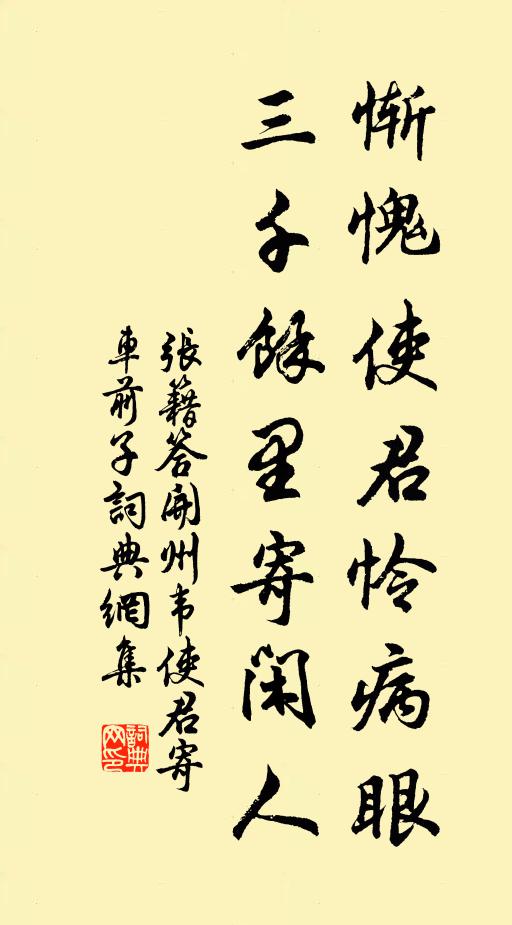 慚愧使君怜病眼
三千餘里寄閑人
張籍答開州韦使君寄
車前子詞典網集
詞典
网印